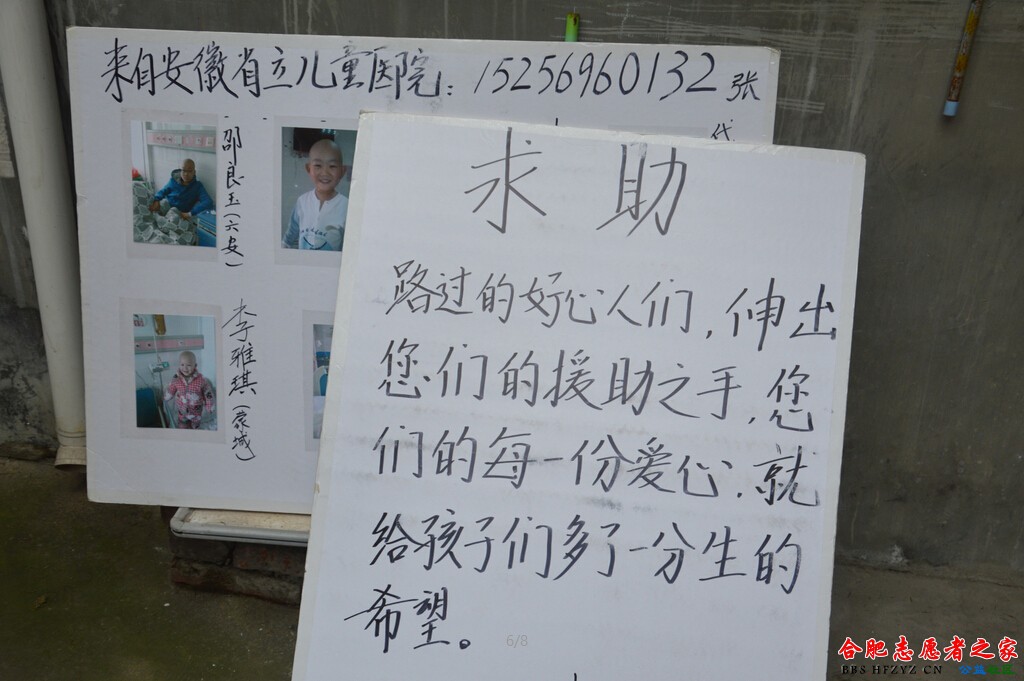 来自安徽省立儿童医院：15256960132 张
代
邵良玉(六安)
李雅琪(蒙城)
求助
路过的好心人们，伸出
您们的援助之手，您
们的每一份爱心．就
给孩子们多了一分生的
希望。
6/8
合肥志愿者之家
BBS HFZYZ CN